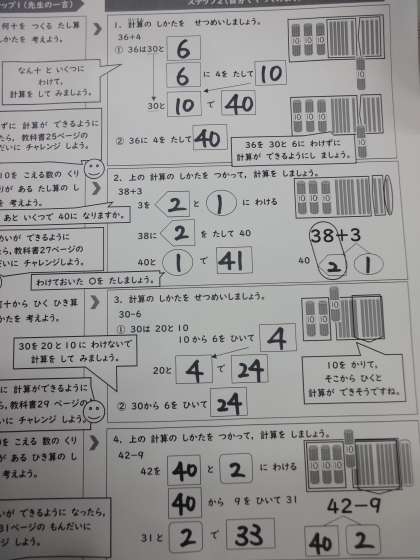 ップ1(先生の一言)
何十を つくる たし算
しかたを 考えよう。
なん十と いくつに
わけて、
計算を して みましょう。
ずに 計算が できるように
たら、教科書25ページの
だいに チャレンジ しよう。
10を こえる数の くり
りが ある たし算の し
を 考えよう。
あと いくつで 40に なりますか。
めいが できるように
たら、教科書27ページの
だいに チャレンジしよう。
わけておいた ○を たしましょう。
何十から ひく ひき算
かたを 考えよう。
30を20と10に わけないで
計算を して みましょう。
に 計算ができるように
ら、教科書29 ページの
いに チャレンジ しよう。
を こえる 数の くり
が ある ひき算の し
考えよう。
いが できるように なったら、
31ページの もんだいに
ンジ しよう。
1. 計算の しかたを せつめいしましょう。
36+4
① 36は30と 6
6 に 4を たして 10
30と 10 で 40
② 36に 4を たして 40
36を 30と 6に わけずに
計算が できるようにし ましょう。
2. 上の 計算の しかたを つかって、計算を しましょう。
38+3
3を 2 と 1 に わける
38に 2 を たして 40
40と 1 で 41
38+3
40 2 1
3. 計算の しかたを せつめいしましょう。
30-6
① 30は 20と 10
10から 6を ひいて 4
20と 4 で 24
② 30から 6を ひいて 24
10を かりて、
そこから ひくと
計算が できそうですね。
4. 上の 計算の しかたを つかって、計算を しましょう。
42-9
42を 40 と 2 に わける
40 から 9を ひいて 31
31と 2 で 33
42-9
40 2
10 10 10
10
10 10 10
10
10 10 10
10 10
10
10 10 10
10